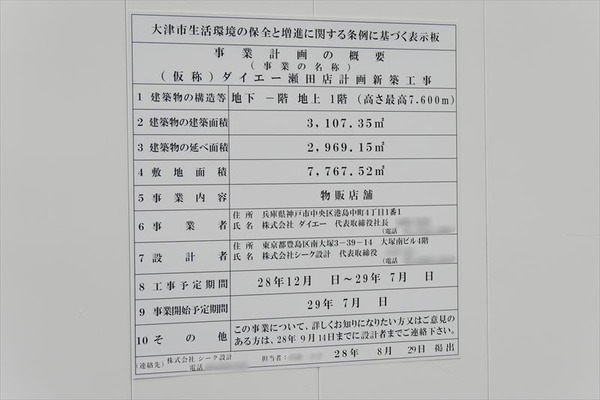 大津市生活環境の保全と増進に関する条例に基づく表示板
事業計画の概要
(事業の名称)
(仮称)ダイエー瀬田店計画新築工事
1 建築物の構造等 地下 ー階 地上 1階 (高さ最高7.600m)
2 建築物の建築面積 3,107.35㎡
3 建築物の延べ面積 2,969.15㎡
4 敷地面積 7,767.52㎡
5 事業内容 物販店舗
6 事業者 住所 兵庫県神戸市中央区港島中町4丁目1番1
氏名 株式会社 ダイエー 代表取締役社長
(電話
7 設計者 住所 東京都豊島区南大塚3-39-14 大塚南ビル4階
氏名 株式会社シーク設計 代表取締役
(電話
8 工事予定期間 28年12月 日~29年 7月 日
9 事業開始予定期間 29年 7月 日
10 その他 この事業について、詳しくお知りになりたい方又はご意見の
ある方は、28年 9月14日までに設計者までご連絡下さい。
(連絡先) 株式会社 シーク設計 担当者: 28年 8月 29日 掲出
電話